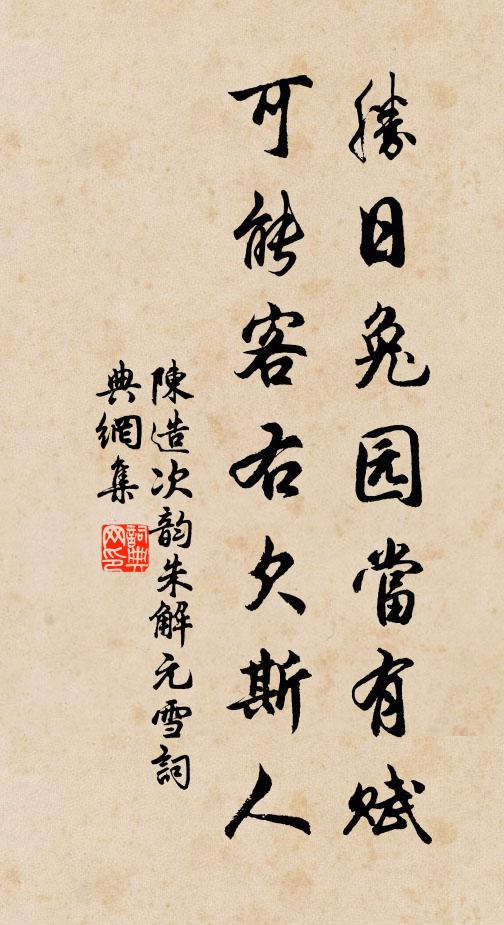 勝日兔园當有赋
可能客右欠斯人
陳造次韵朱解元雪詞
典網集
詞典
网印